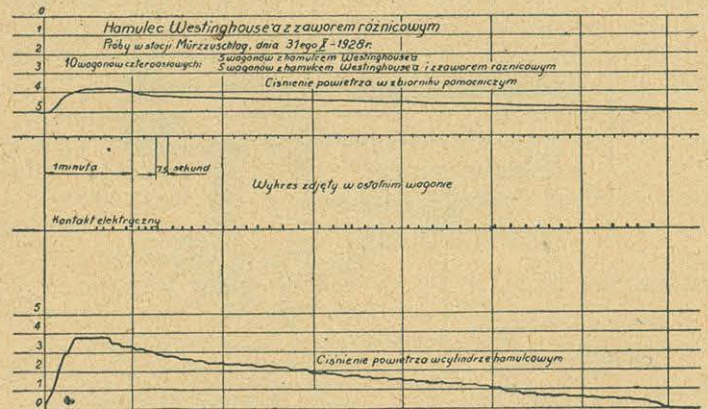 0
Hamulec Westinghouse'a z zaworem różnicowym
1
Próby w stacji Mürzzuschlag, dnia 31ego X-1928r.
2
10 wagonów czteroosiowych: 5 wagonów z hamulcem Westinghouse'a
5 wagonów z hamulcem Westinghouse'a i z zaworem różnicowym
3
Ciśnienie powietrza w zbiorniku pomocniczym
4
5
1 minuta
7.5 sekund
Wykres zdjęty w ostatnim wagonie
Kontakt elektryczny
5
4
3
Ciśnienie powietrza w cylindrze hamulcowym
2
1
0